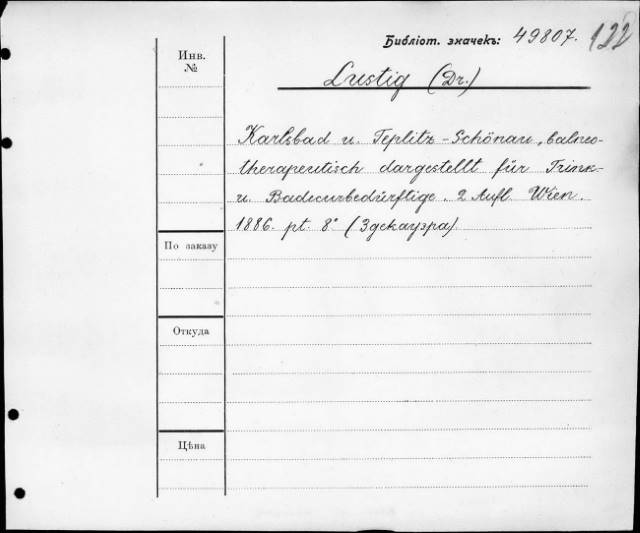 Библіот. значекъ: 49807. 122
Инв.
№
Lustig (Dr.)
Karlsbad u. Teplitz-Schönau, balneo-
therapeutisch dargestellt für Trink-
u. Badecurbedürftige. 2 Aufl. Wien.
1886. pt. 8° (3 декауэра).
По заказу
Откуда
Цѣна